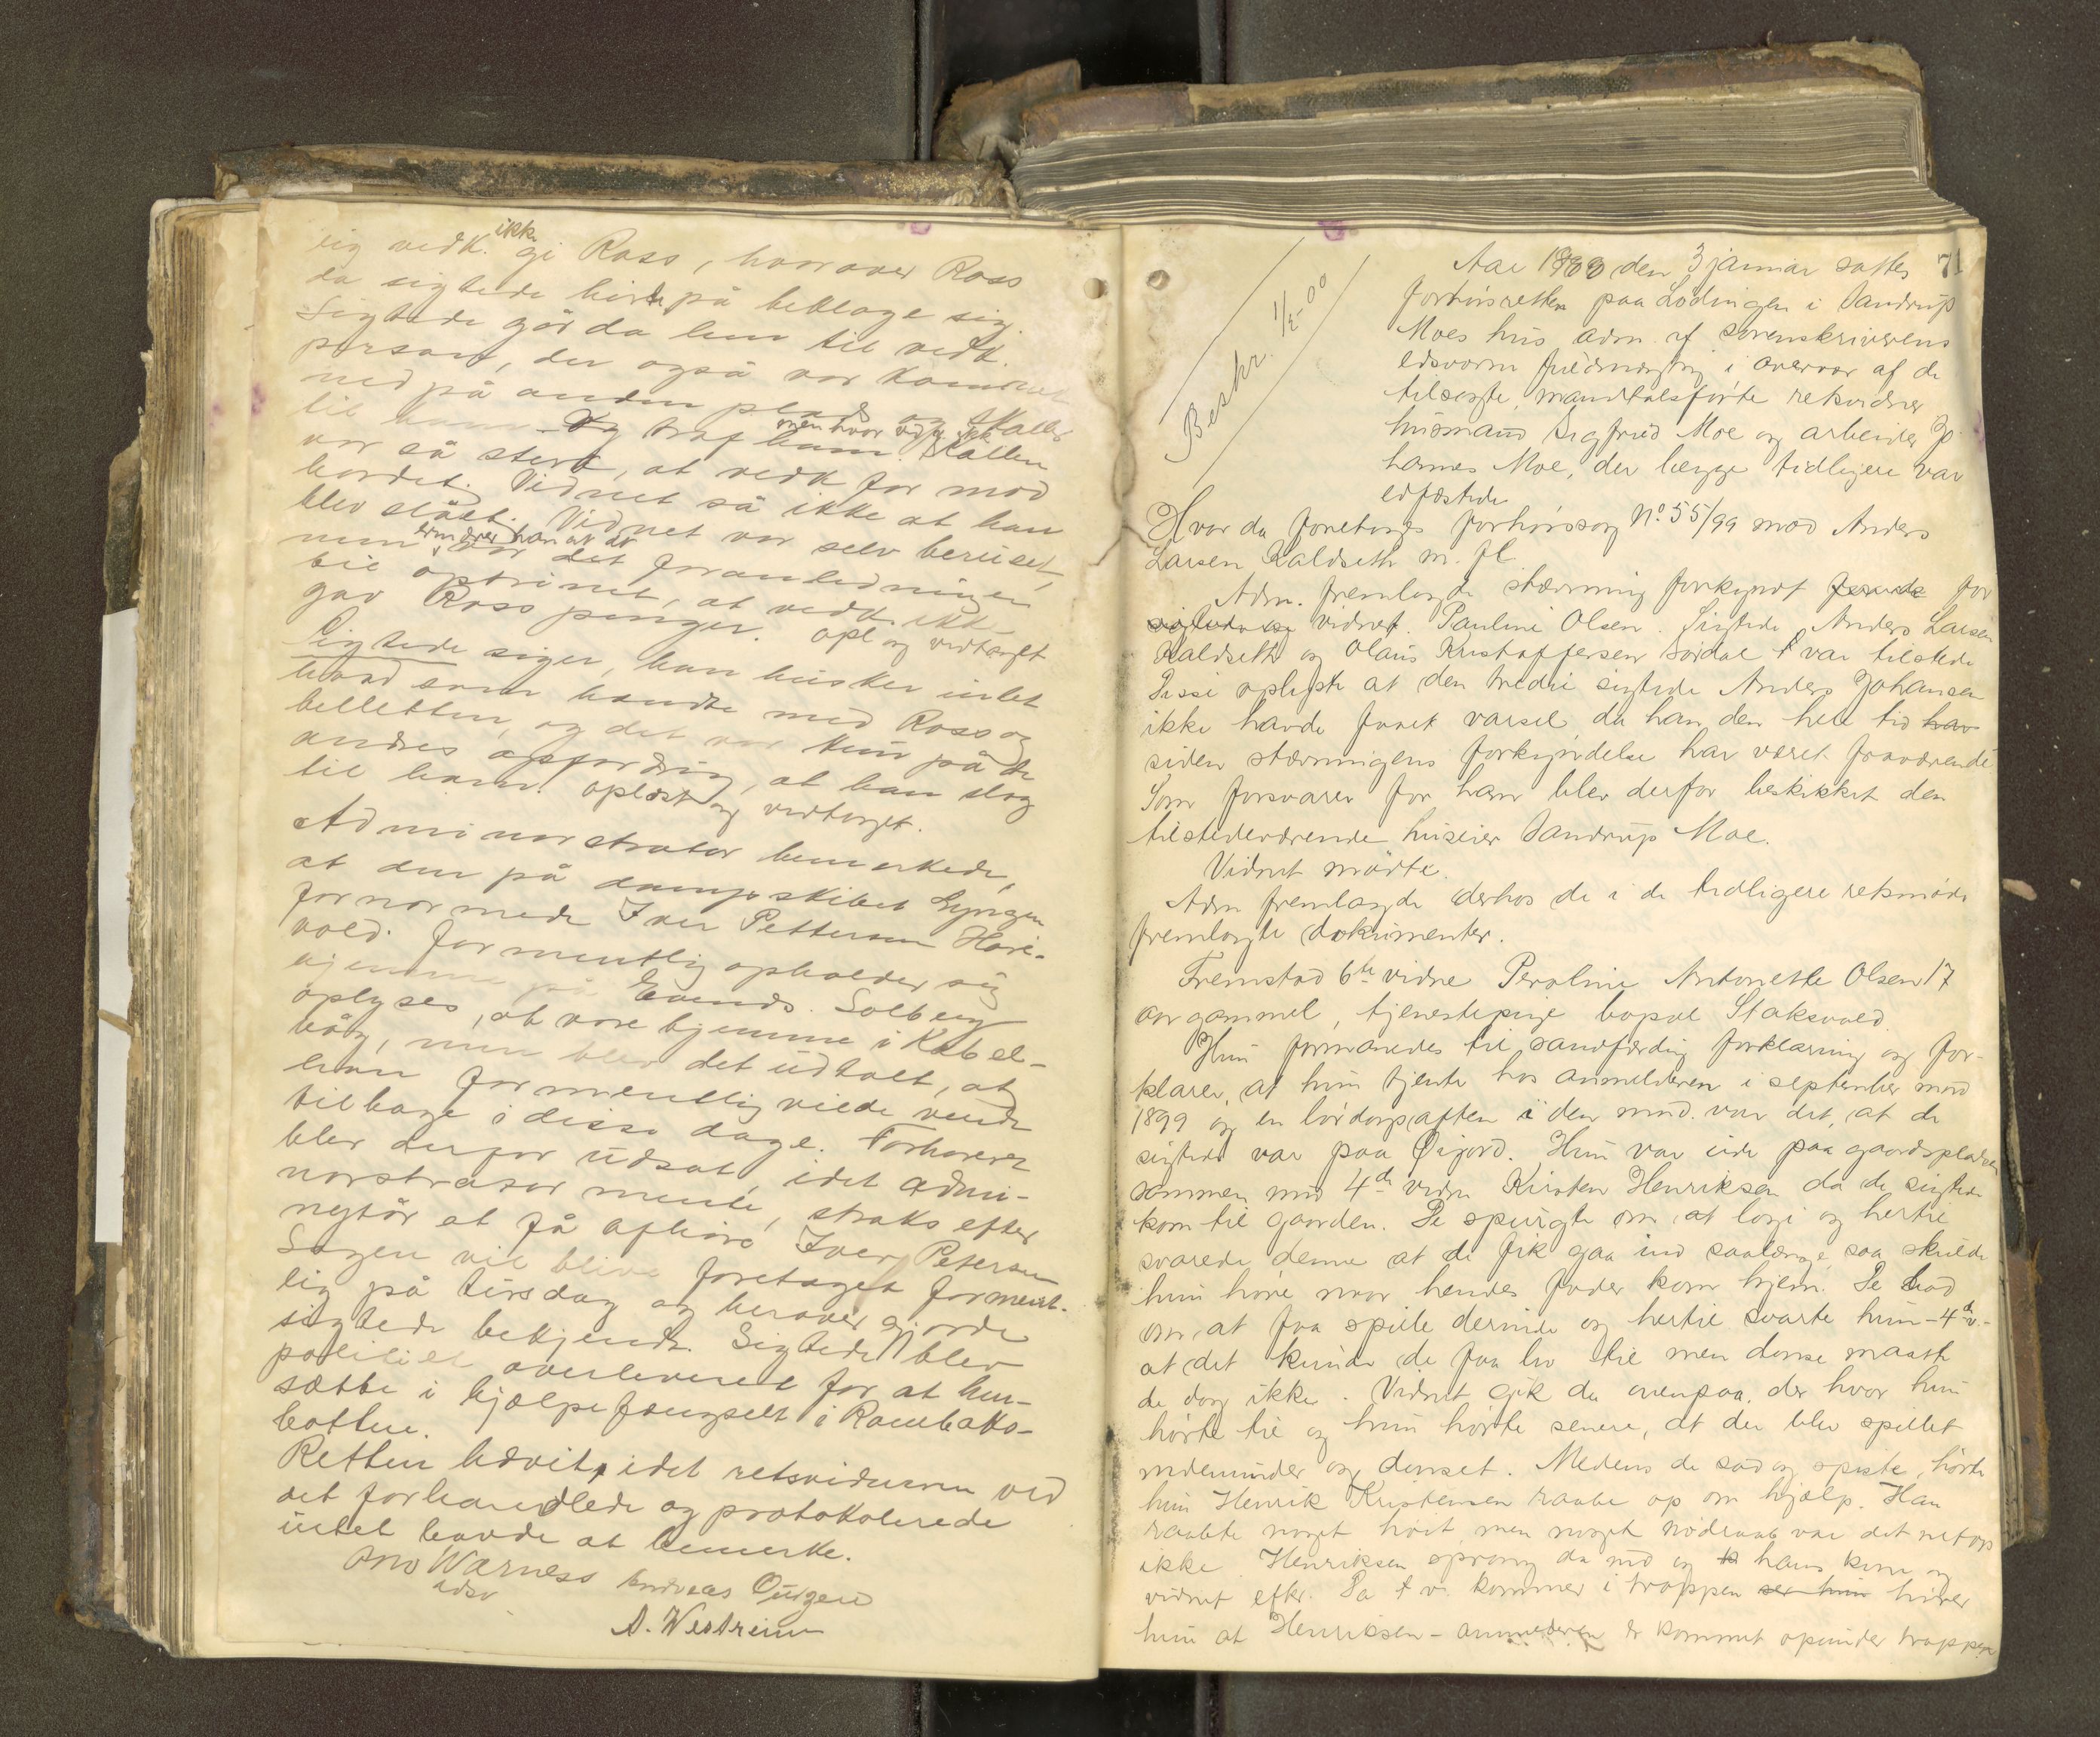 sig vedk. ikke gi Ross, hvorover Ross
da sigtede hørte på beklage sig.
Sigtede går da hen til vedk.
person, der også var kommet
ned på anden plads og skaller
til ham. Og traf ham men hvor ved v. ikke. Skallen
var så sterk, at vedk for mod
bordet. Vidnet så ikke at han
blev slået. Vidnet var selv beruset,
men erindrer han at det foranledningen
til optrinet, at vedk. ikke
gav Ross penger. Opl og vedtaget
Sigtede siger, han husker intet
hvad som hændte med Ross og
belletten, og det var kun på de
andres opfordring, at han slog
til ham. Oplæst og vedtaget.
Administrator bemerkede,
at den på dampskibet Lyngen
fornærmede Iver Pettersen Hari-
vold. formentlig opholder sig
hjemme på Evends. Solberg
oplyses, at være hjemme i Kabel-
våg, men blev det udtalt, at
han formentlig vilde vende
tilbage i disse dage. Forhøret
blev derfor udsat, idet admi-
nistrator mente, straks efter
nytår at få afhøre Iver Petersen
Sagen vil blive foretaget forment-
lig på tirsdag og herover gjorde
sigtede bekjendt. Sigtede blev
politiet overleveret for at hen-
sætte i hjælpefængselet i Rombaks-
botten.
Retten hævet, idet retsvidnerne ved
det forhandlede og protokolerede
intet havde at bemerke.
Ono Warness Andreas Oûigen
edsv
A. Westreim
71
Beskr. 1/2-00
Aar 1900 den 3 januar sattes
forhørsretten paa Lødingen i Jandrup
Moes hus adm. af sorenskriverens
edsvorne fuldmægtig i overvær af de
tilsagte, mandtalsførte retsvidner
husmand Sigfrid Moe og arbeider Jo
hannes Moe, der begge tidligere var
edfæstede
Hvor da foretoges forhørssag No 55/99 mod Anders
Larsen Kaldseth m. fl.
Adm. fremlagde stævning forkyndt for
sigtede og vidnet. Pauline Olsen. Sigtede Anders Larsen
Kaldseth og Olaus Kristoffersen Sørdal var tilstede
Disse oplyste at den tredie sigtede Anders Johansen
ikke havde faaet varsel da han den hele tid har
siden stævningens forkyndelse har været fraværende
Som forsvarer for ham blev derfor beskikket den
tilstedeværende huseier Jandrup Moe.
Vidnet mødte.
Adm fremlagde derhos de i de tidligere retsmøde
fremlagte dokumenter.
Fremstod 6te vidne Peroline Antonette Olsen 17
aar gammel, tjenestepige bopæl Staksvold.
Hun formanedes til sandfærdig forklaring og for-
klarer, at hun tjente hos anmelderen i september mnd
1899 og en lørdagsaften i den mnd. var det, at de
sigtede var paa Øijord. Hun var ude paa gaardspladsen
sammen med 4de vidne Kirsten Henriksen da de sigtede
kom til gaarden. De spurgte om at logi og hertil
svarede denne at de fik gaa ind saalænge, saa skulde
hun høre naar hendes fader kom hjem. De bad
om, at faa spille derinde og hertil svarte hun - 4de v. -
at det kunde de faa lov til men danse maatte
de dog ikke. Vidnet gik da ovenpaa, der hvor hun
hørte til og hun hørte senere, at der blev spillet
nedenunder og danset. Medens de sad og spiste, hørte
hun Henrik Kristensen raabe op om hjælp. Han
raabte noget høit men noget nødraab var det netop
ikke. Henriksen sprang da ned og hans kone og
vidnet efter. Da v. kommer i trappen ser hun hører
hun at Henriksen - anmelderen er kommet opunder trappen